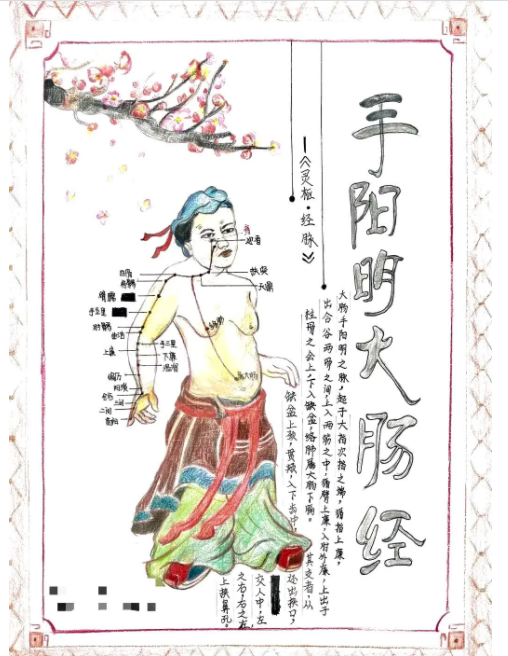 手阳明大肠经
大肠手阳明之脉，起于大指次指之端，循指上廉，
出合谷两骨之间，上入两筋之中，循臂上廉，入肘外廉，上出于
柱骨之会上，下入缺盆，络肺属大肠下膈。
其支者，从
缺盆上颈，贯颊，入下齿中，
还出挟口，
交人中，左
之右，右之左，
上挟鼻孔。
《灵枢·经脉》
迎香
扶突
天鼎
肩髃
手五里
肘髎
曲池
上廉
手三里
下廉
温溜
偏历
阳溪
合谷
三间
二间
商阳
属大肠